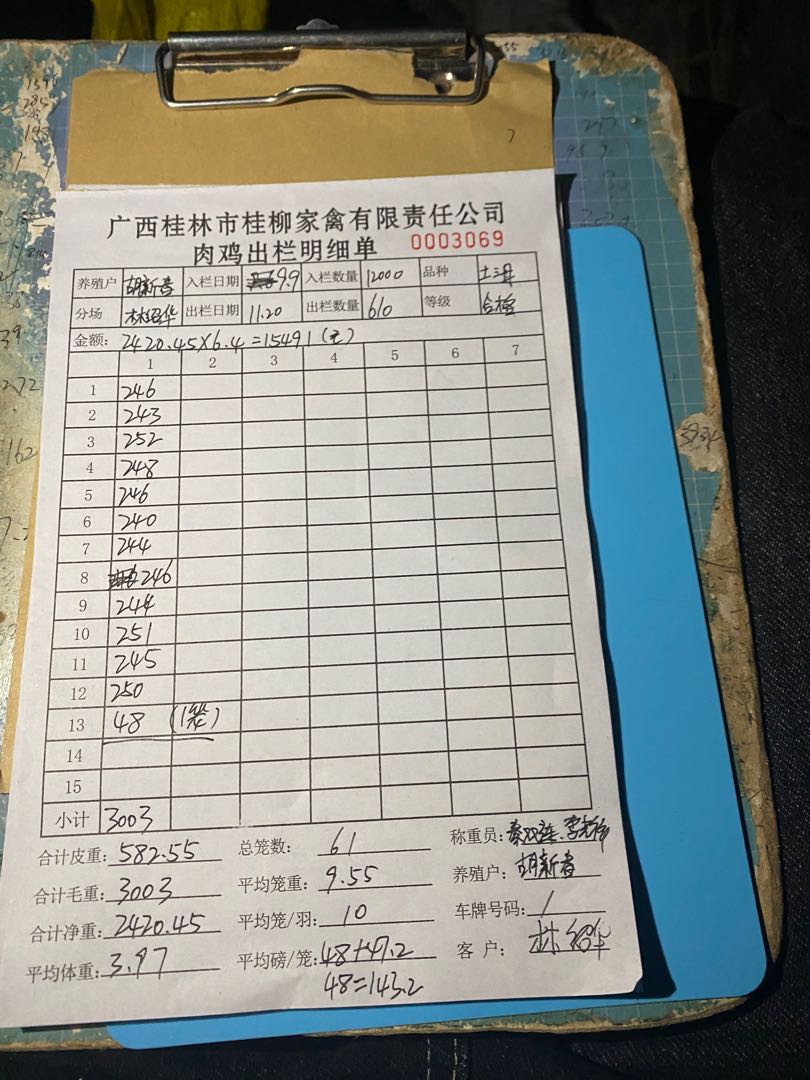 广西桂林市桂柳家禽有限责任公司
肉鸡出栏明细单 0003069
养殖户 胡新春 入栏日期 9.9 入栏数量 12000 品种 土三
分场 林绍华 出栏日期 11.20 出栏数量 610 等级 合格
金额: 2420.45×6.4=15491(元)
1 2 3 4 5 6 7
1 246
2 243
3 252
4 248
5 246
6 240
7 244
8 246
9 244
10 251
11 245
12 250
13 48 (1笼)
14
15
小计 3003
合计皮重: 582.55 总笼数: 61 称重员:
合计毛重: 3003 平均笼重: 9.55 养殖户: 胡新春
合计净重: 2420.45 平均笼/羽: 10 车牌号码: 1
平均体重: 3.97 平均磅/笼: 48+47.2 客户: 林绍华
48=143.2